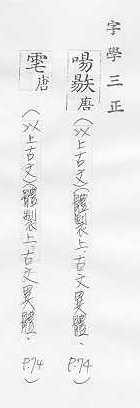 字學三正
啺敭唐（以上古文）（體製上古文異體．P.74）
䨎唐（以上古文）（體製上古文異體．P.74）